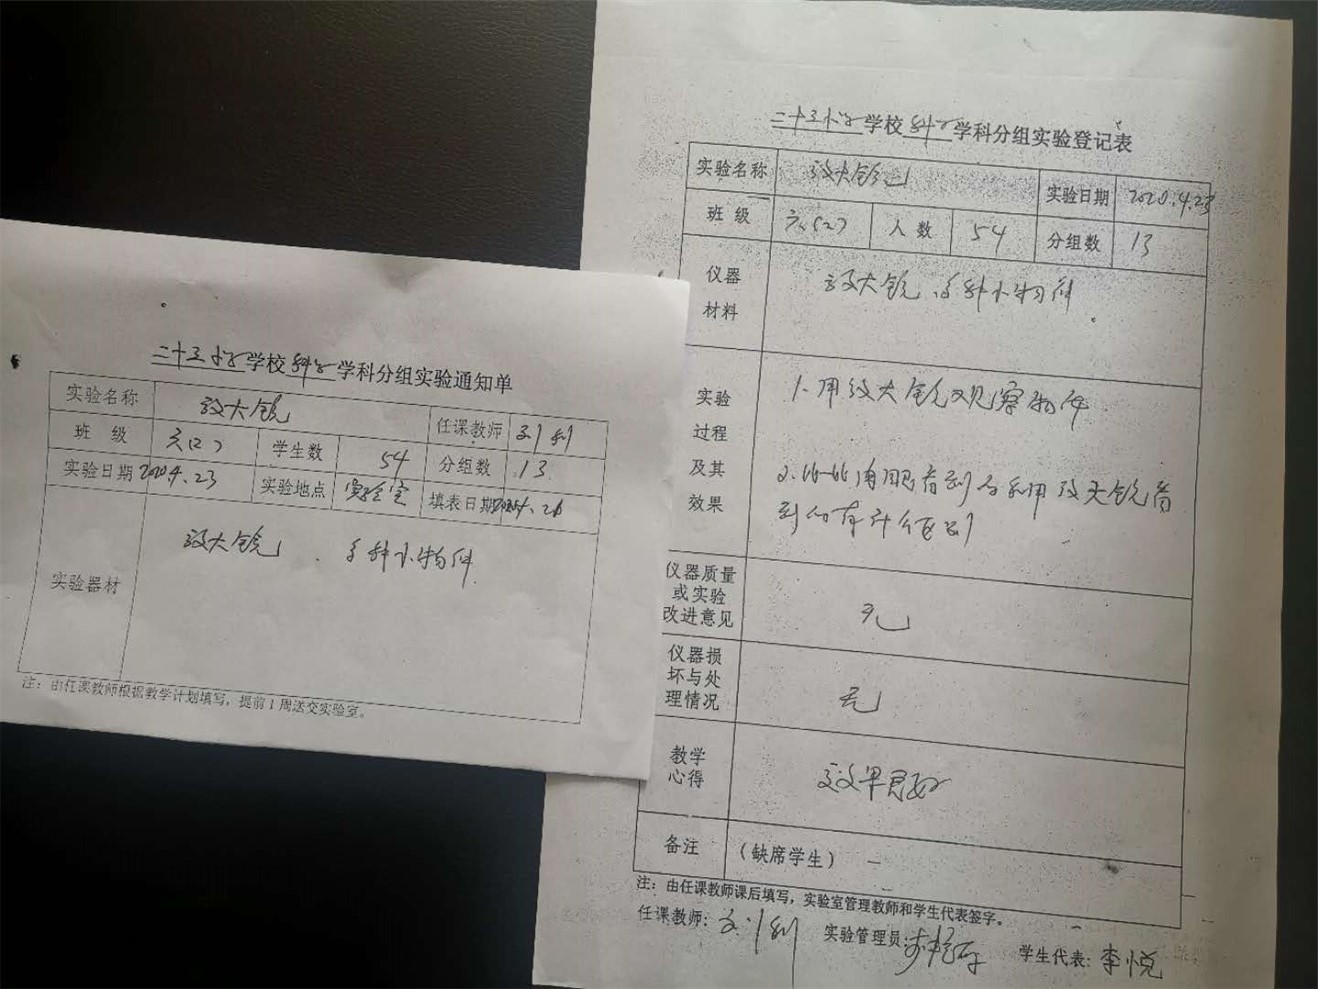 二十三小学学校科学学科分组实验通知单
实验名称 放大镜 任课教师 刘利
班 级 六(2) 学生数 54 分组数 13
实验日期 2020.4.23 实验地点 实验室 填表日期
实验器材 放大镜、各种小物件
注：由任课教师根据教学计划填写，提前1周送交实验室。
二十三小学学校科学学科分组实验登记表
实验名称 放大镜 实验日期 2020.4.23
班 级 六(2) 人 数 54 分组数 13
仪器材料 放大镜、各种小物件。
实验过程及其效果 1.用放大镜观察物体
2.比比用眼看到与利用放大镜看
到的有什么区别
仪器质量或实验改进意见 无
仪器损坏与处理情况 无
教学心得 效果良好
备注 （缺席学生） —
注：由任课教师课后填写，实验室管理教师和学生代表签字。
任课教师：刘利 实验管理员： 学生代表：李悦